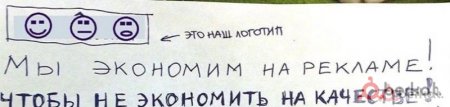 ← ЭТО НАШ ЛОГОТИП
МЫ ЭКОНОМИМ НА РЕКЛАМЕ!
ЧТОБЫ НЕ ЭКОНОМИТЬ НА КАЧЕСТВЕ!